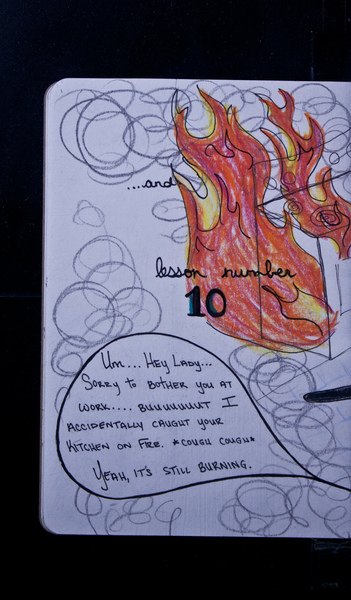 ....and
lesson number
10
Um... Hey Lady...
Sorry to bother you at
work.... buuuuuuut I
accidentally caught your
kitchen on fire. *cough cough*
Yeah, it's still burning.